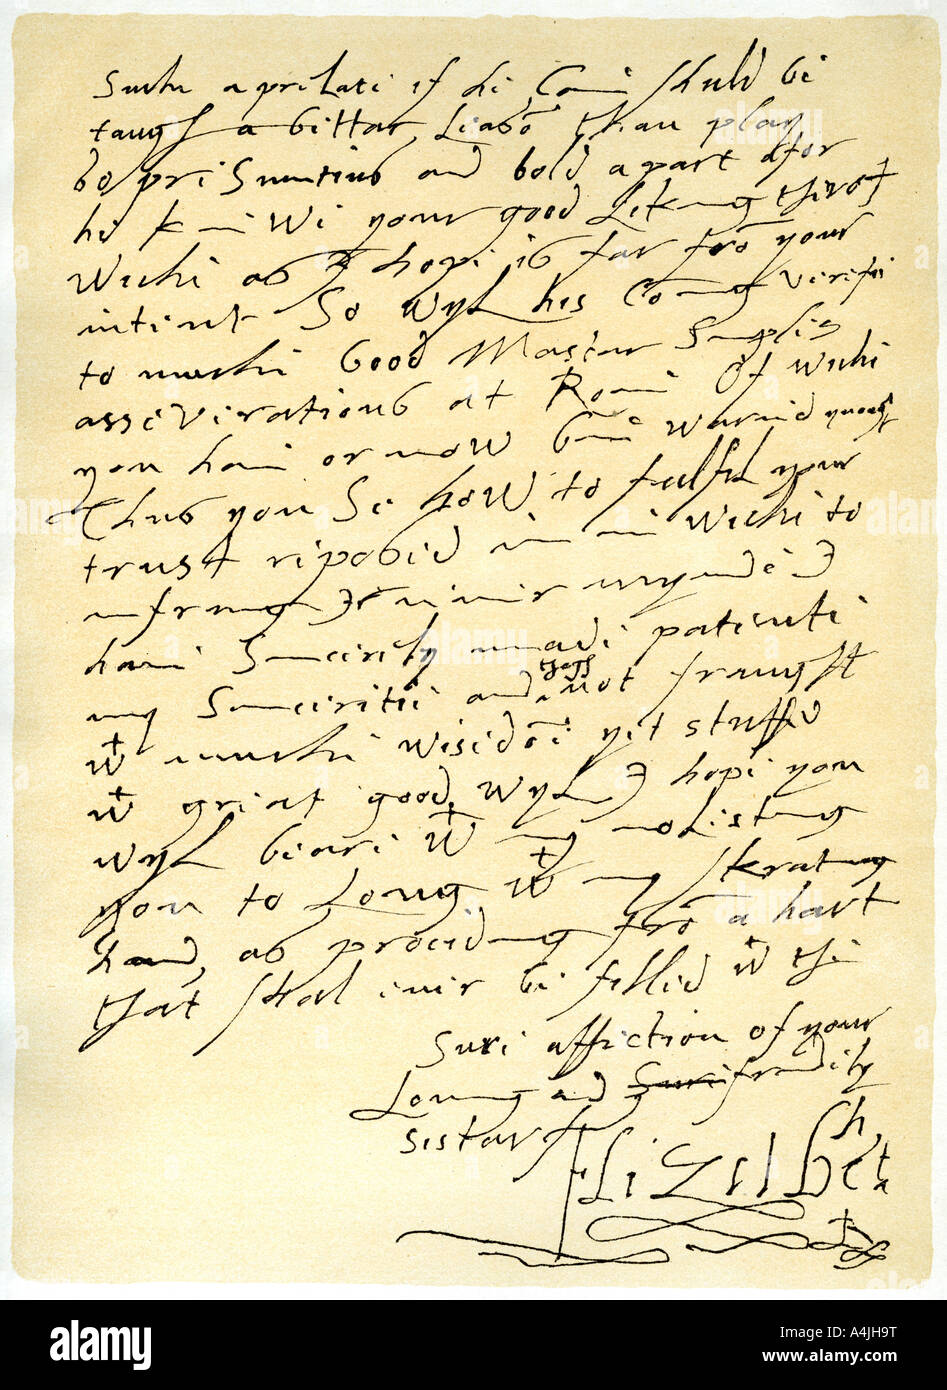 Suche a prelate if he came shuld be
taught a bettar lesson than play
so presumtius and bold a part afor
he knewe your good liking therof
wiche as I hope is far from your
intent So wyl his coming verefie
to muche good Mastar Simples
asseverations at Rome Of wiche
you have or now bene warned ynough
Thus you Se how to fulfil your
trust reposed in me wiche to
infring I never mynde I
have Sincerely made patente
my Sinceritie and thogh not fraught
wt muche wisedome yet stuffed
wt great good wyl I hope you
wyl beare wt my molesting
you to long wt my skrating
hand, as proceding from a hart
that shal ever be filled wt the
Sure affection of your
Loving and Sure frendely
sistar
Elizabeth R
alamy
a
Image ID: A4JH9T
www.alamy.com